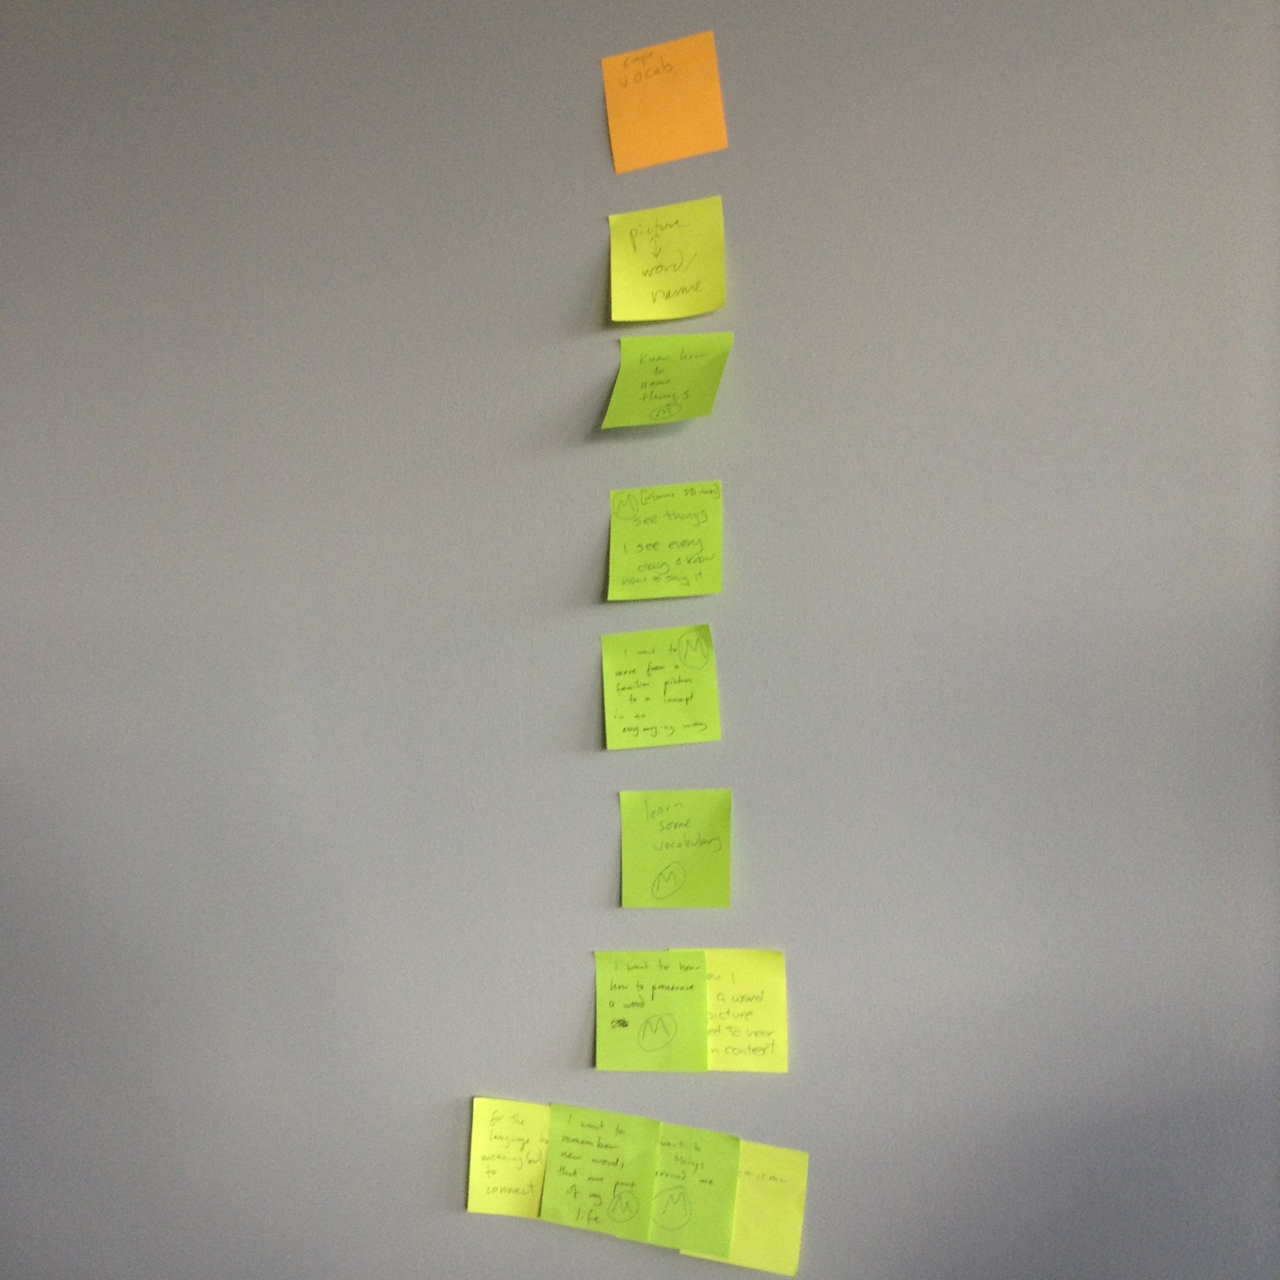 simple
vocab
picture
↕
word/
name
Know how
to
name
things
M
M
see things
I see every
day & know
how to say it
I want to
M
move from a
familiar picture
to a concept
in an
engaging way
learn
some
vocabulary
M
I want to hear
how to pronounce
a word
M
I
a word
picture
ed to hear
n context
for the
language to
meaningful
to
connect
I want to
remember
new words
that are part
of my
life
M
want to
things
around me
M